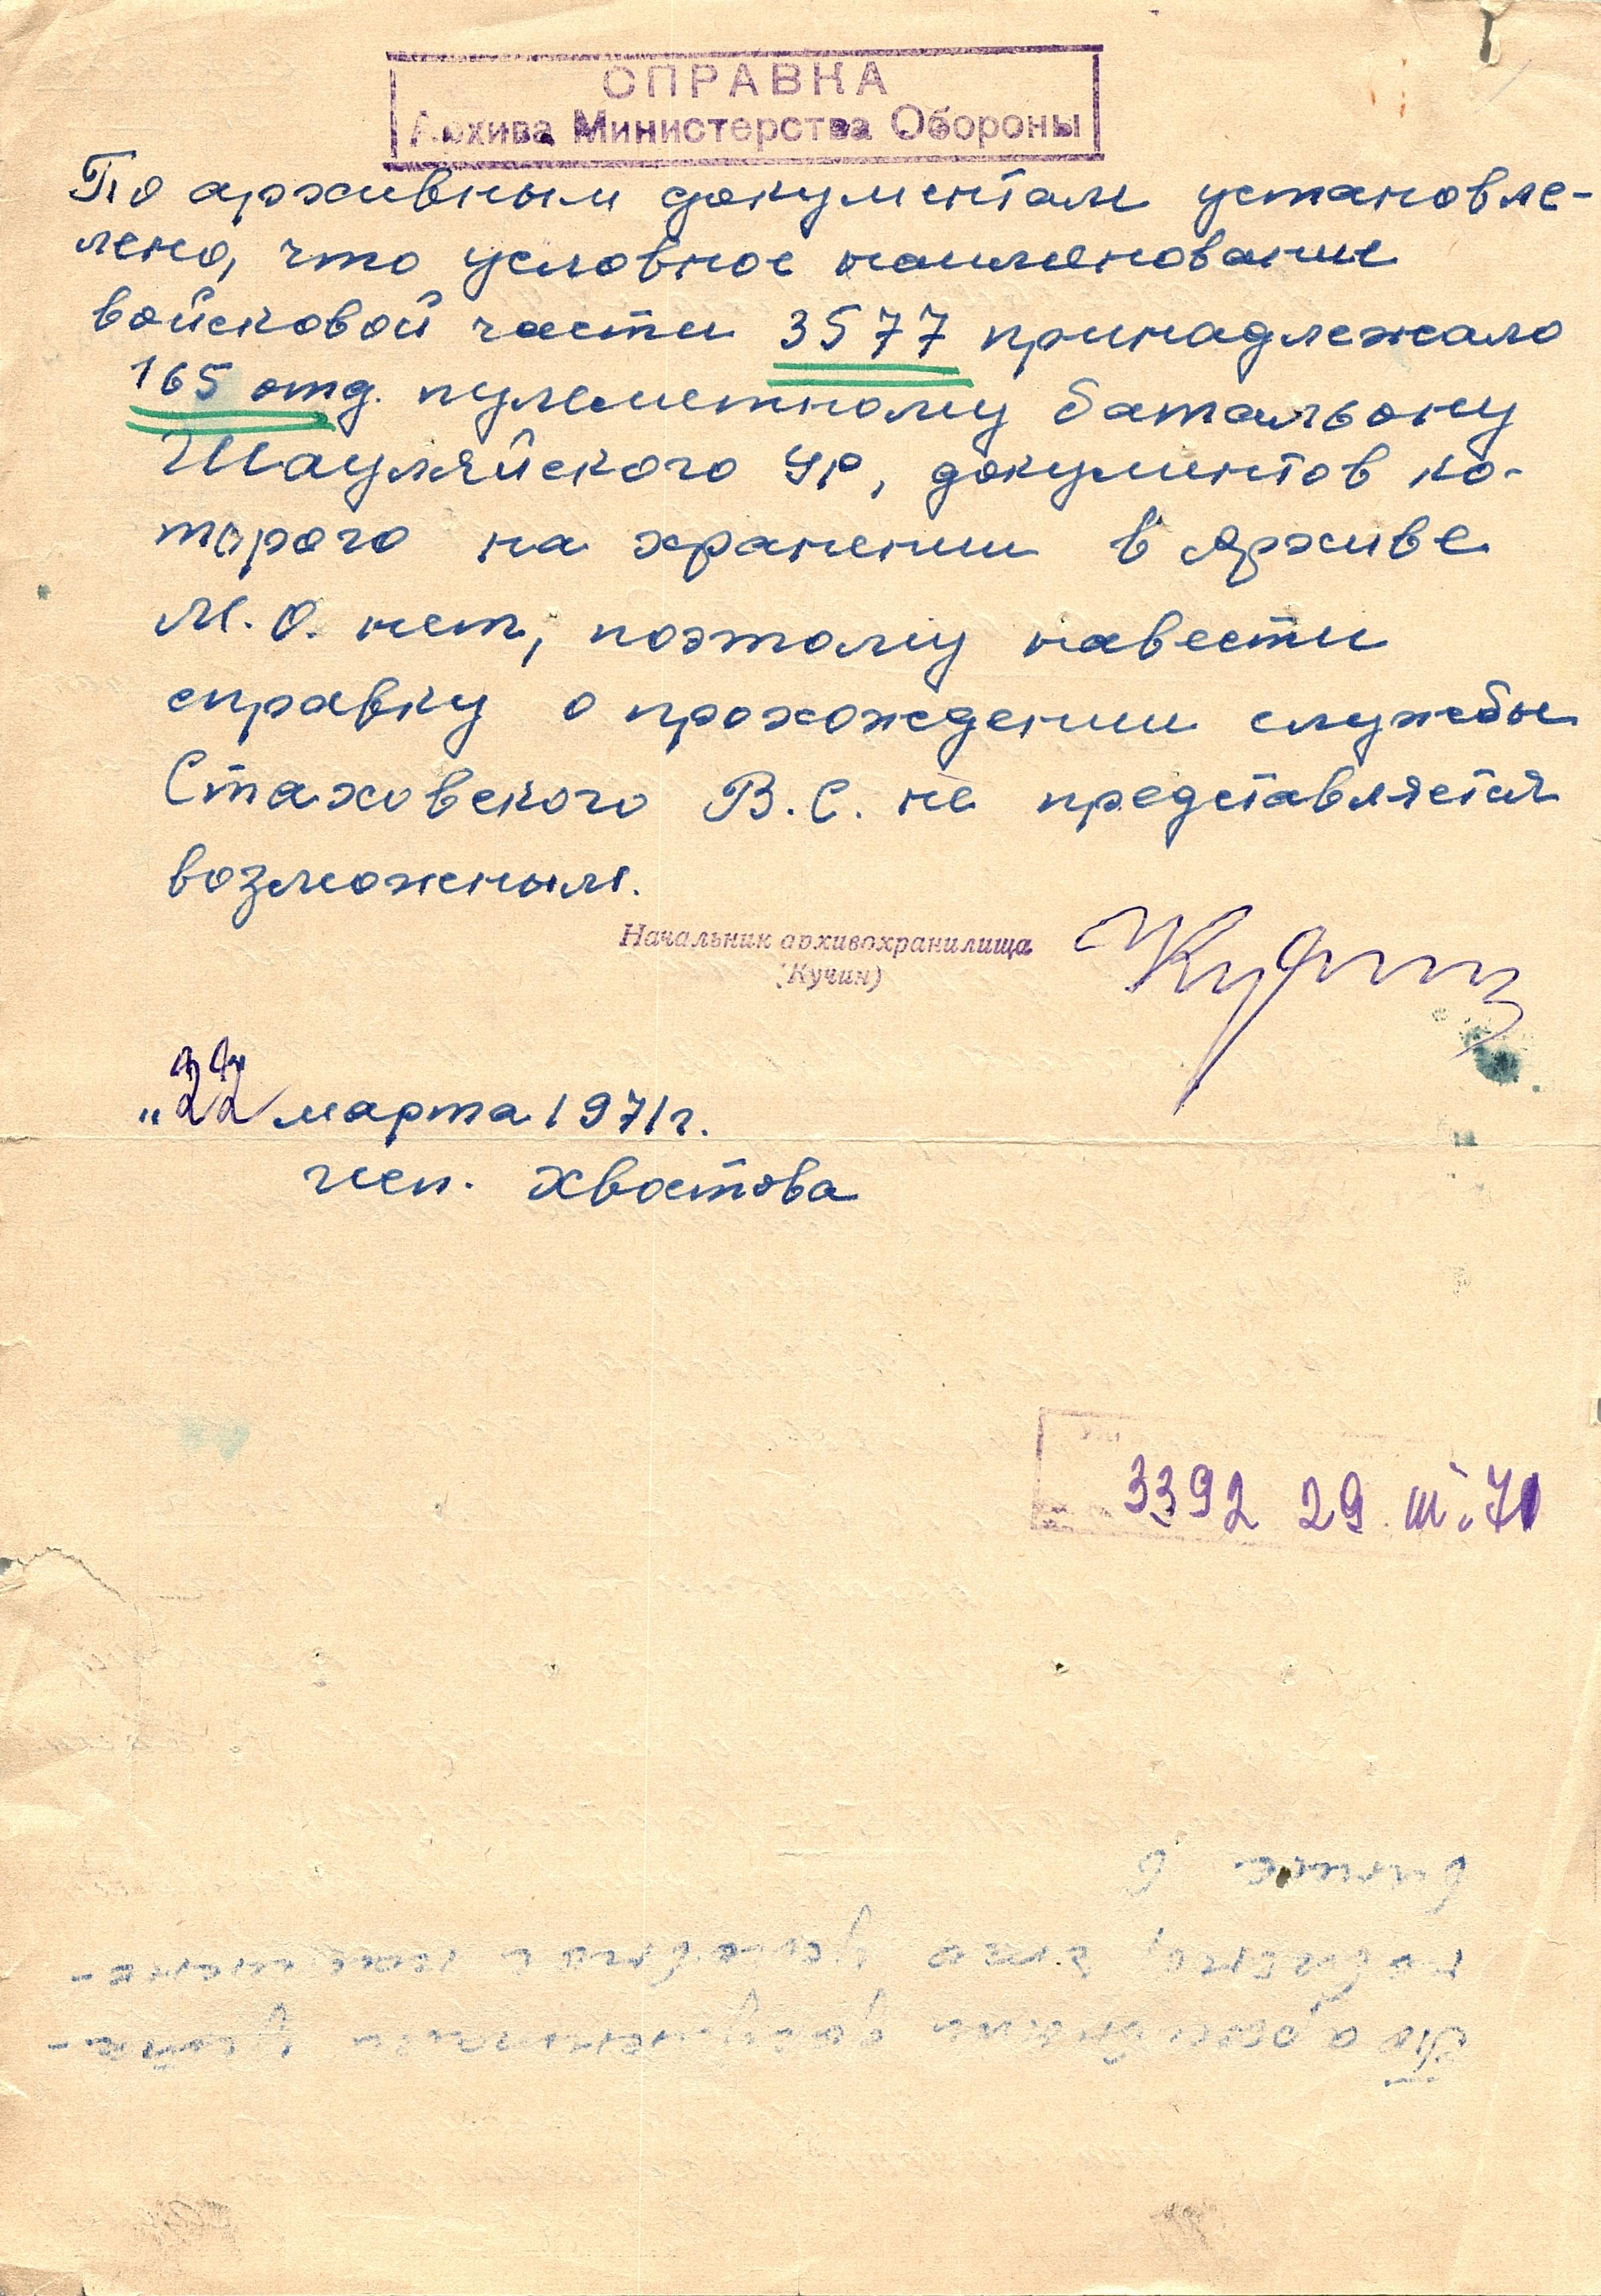 СПРАВКА
Архива Министерства Обороны
По архивным документам установле-
лено, что условное наименование
войсковой части 3577 принадлежало
165 отд. пулеметному батальону
Шауляйского УР, документов ко-
торого на хранении в Архиве
М.О. нет, поэтому навести
справку о прохождении службы
Стаховского В.С. не представляется
возможным.
Начальник архивохранилища
(Кучин)
"22 марта 1971г.
исп. Хвостова
3392 29. III. 71